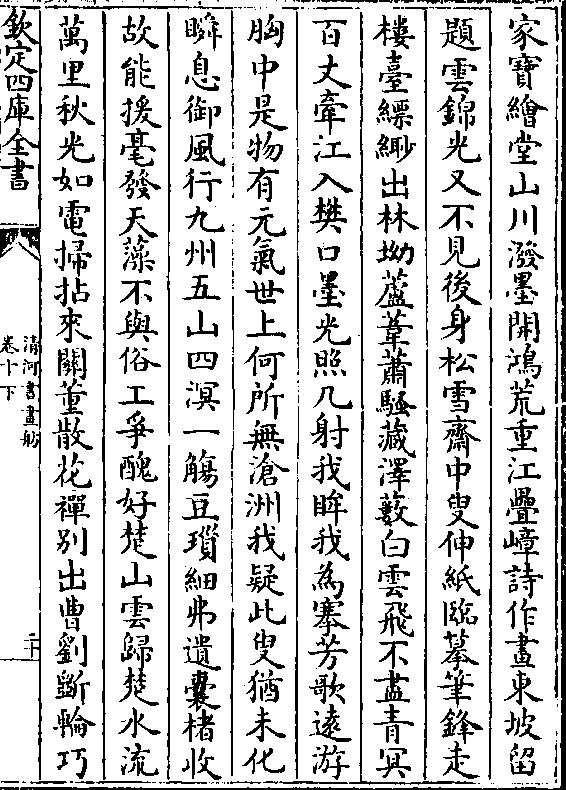 家寶繪堂山川潑墨開鴻荒重江疊嶂詩作畫東坡留
題雲錦光又不見後身松雪齋中叟伸紙臨摹筆鋒走
樓臺縹緲出林坳蘆葦蕭騷藏澤藪白雲飛不盡青冥
百丈牽江入樊口墨光照几射我眸我為搴芳歌遠游
胸中是物有元氣世上何所無滄洲我疑此叟猶未化
瞬息御風行九州五山四溟一觴豆瑣細弗遺囊楮收
故能援毫發天藻不與俗工爭醜好楚山雲歸楚水流
萬里秋光如電掃拈來關董散花禪別出曹劉斲輪巧
欽定四庫全書
清河書畫舫
卷十下
二十